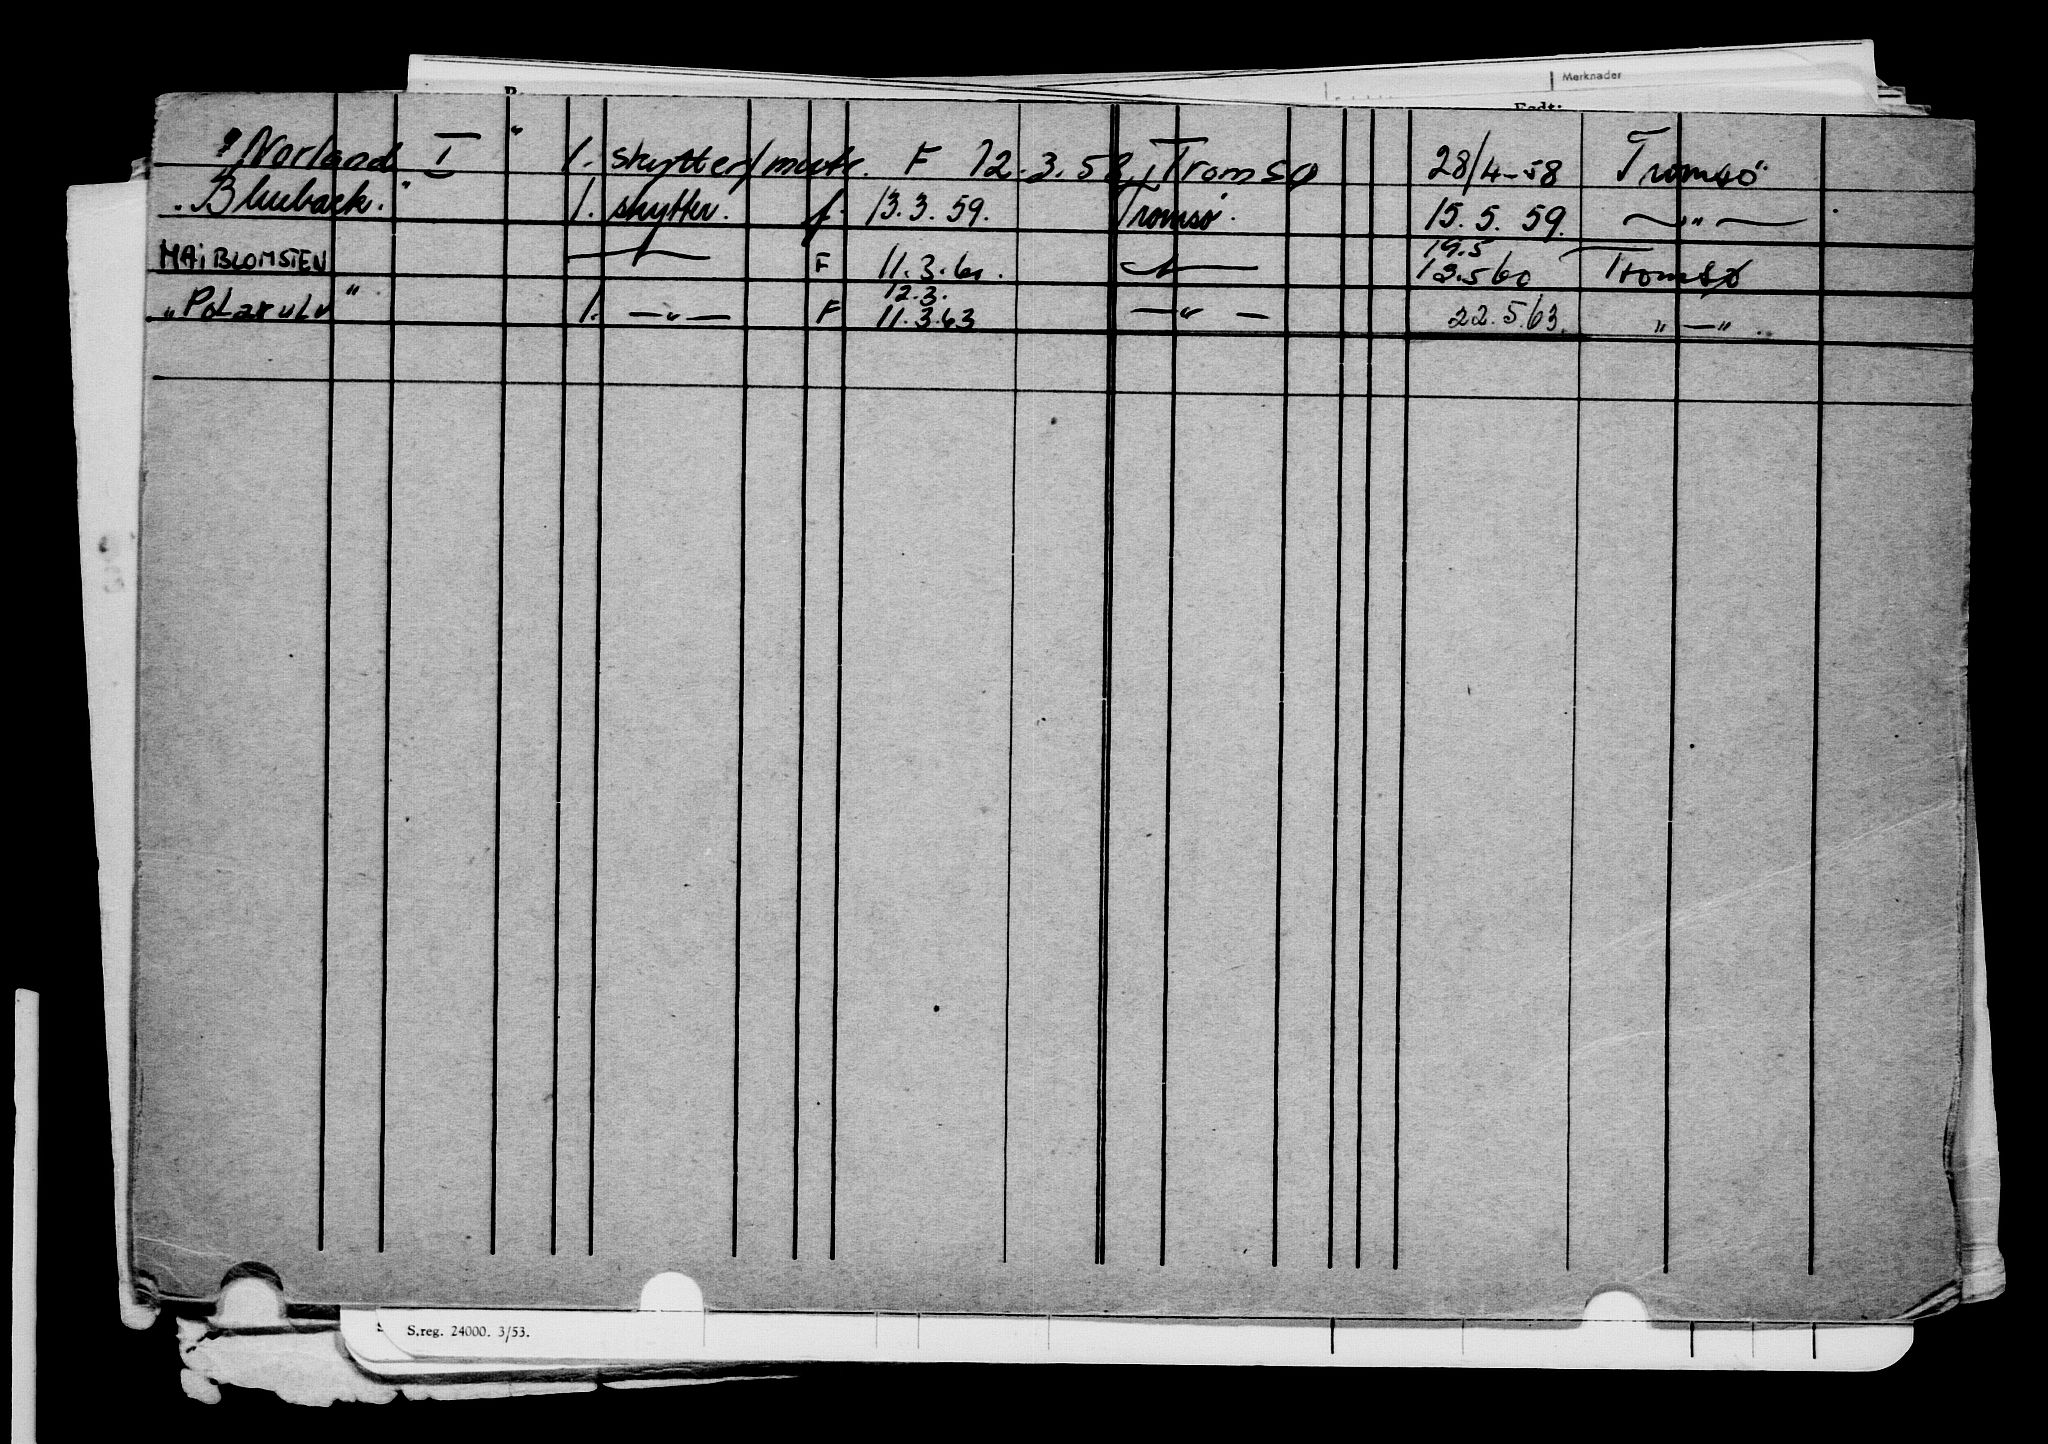 Merknader
Født:
"Norland I" 1. skytter/matr. F 12.3.58 Tromsø 28/4-58 Tromsø
"Blueback." 1. skytter. f. 13.3.59. Tromsø. 15.5.59. — " —
MAiBLOMSTEN — " — F 11.3.60. — " — 19.5 13.560 Tromsø
"Polarulv" 1. — " — F 12.3. 11.3.63 — " — 22.5.63. " — "
S.reg. 24000. 3/53.